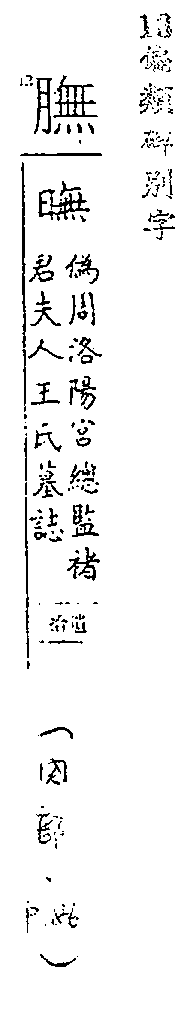 13偏類碑別字
膴
偽周洛陽宮總監褚
君夫人王氏墓誌
(肉部、